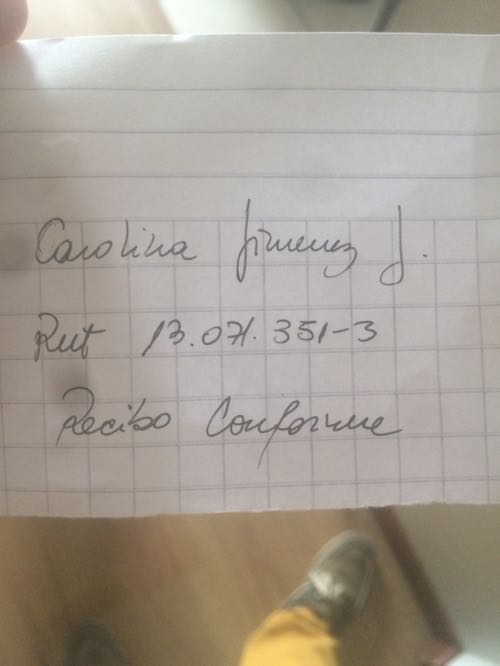 Carolina Jimenez J.
Rut 13.071.351-3
Recibo Conforme